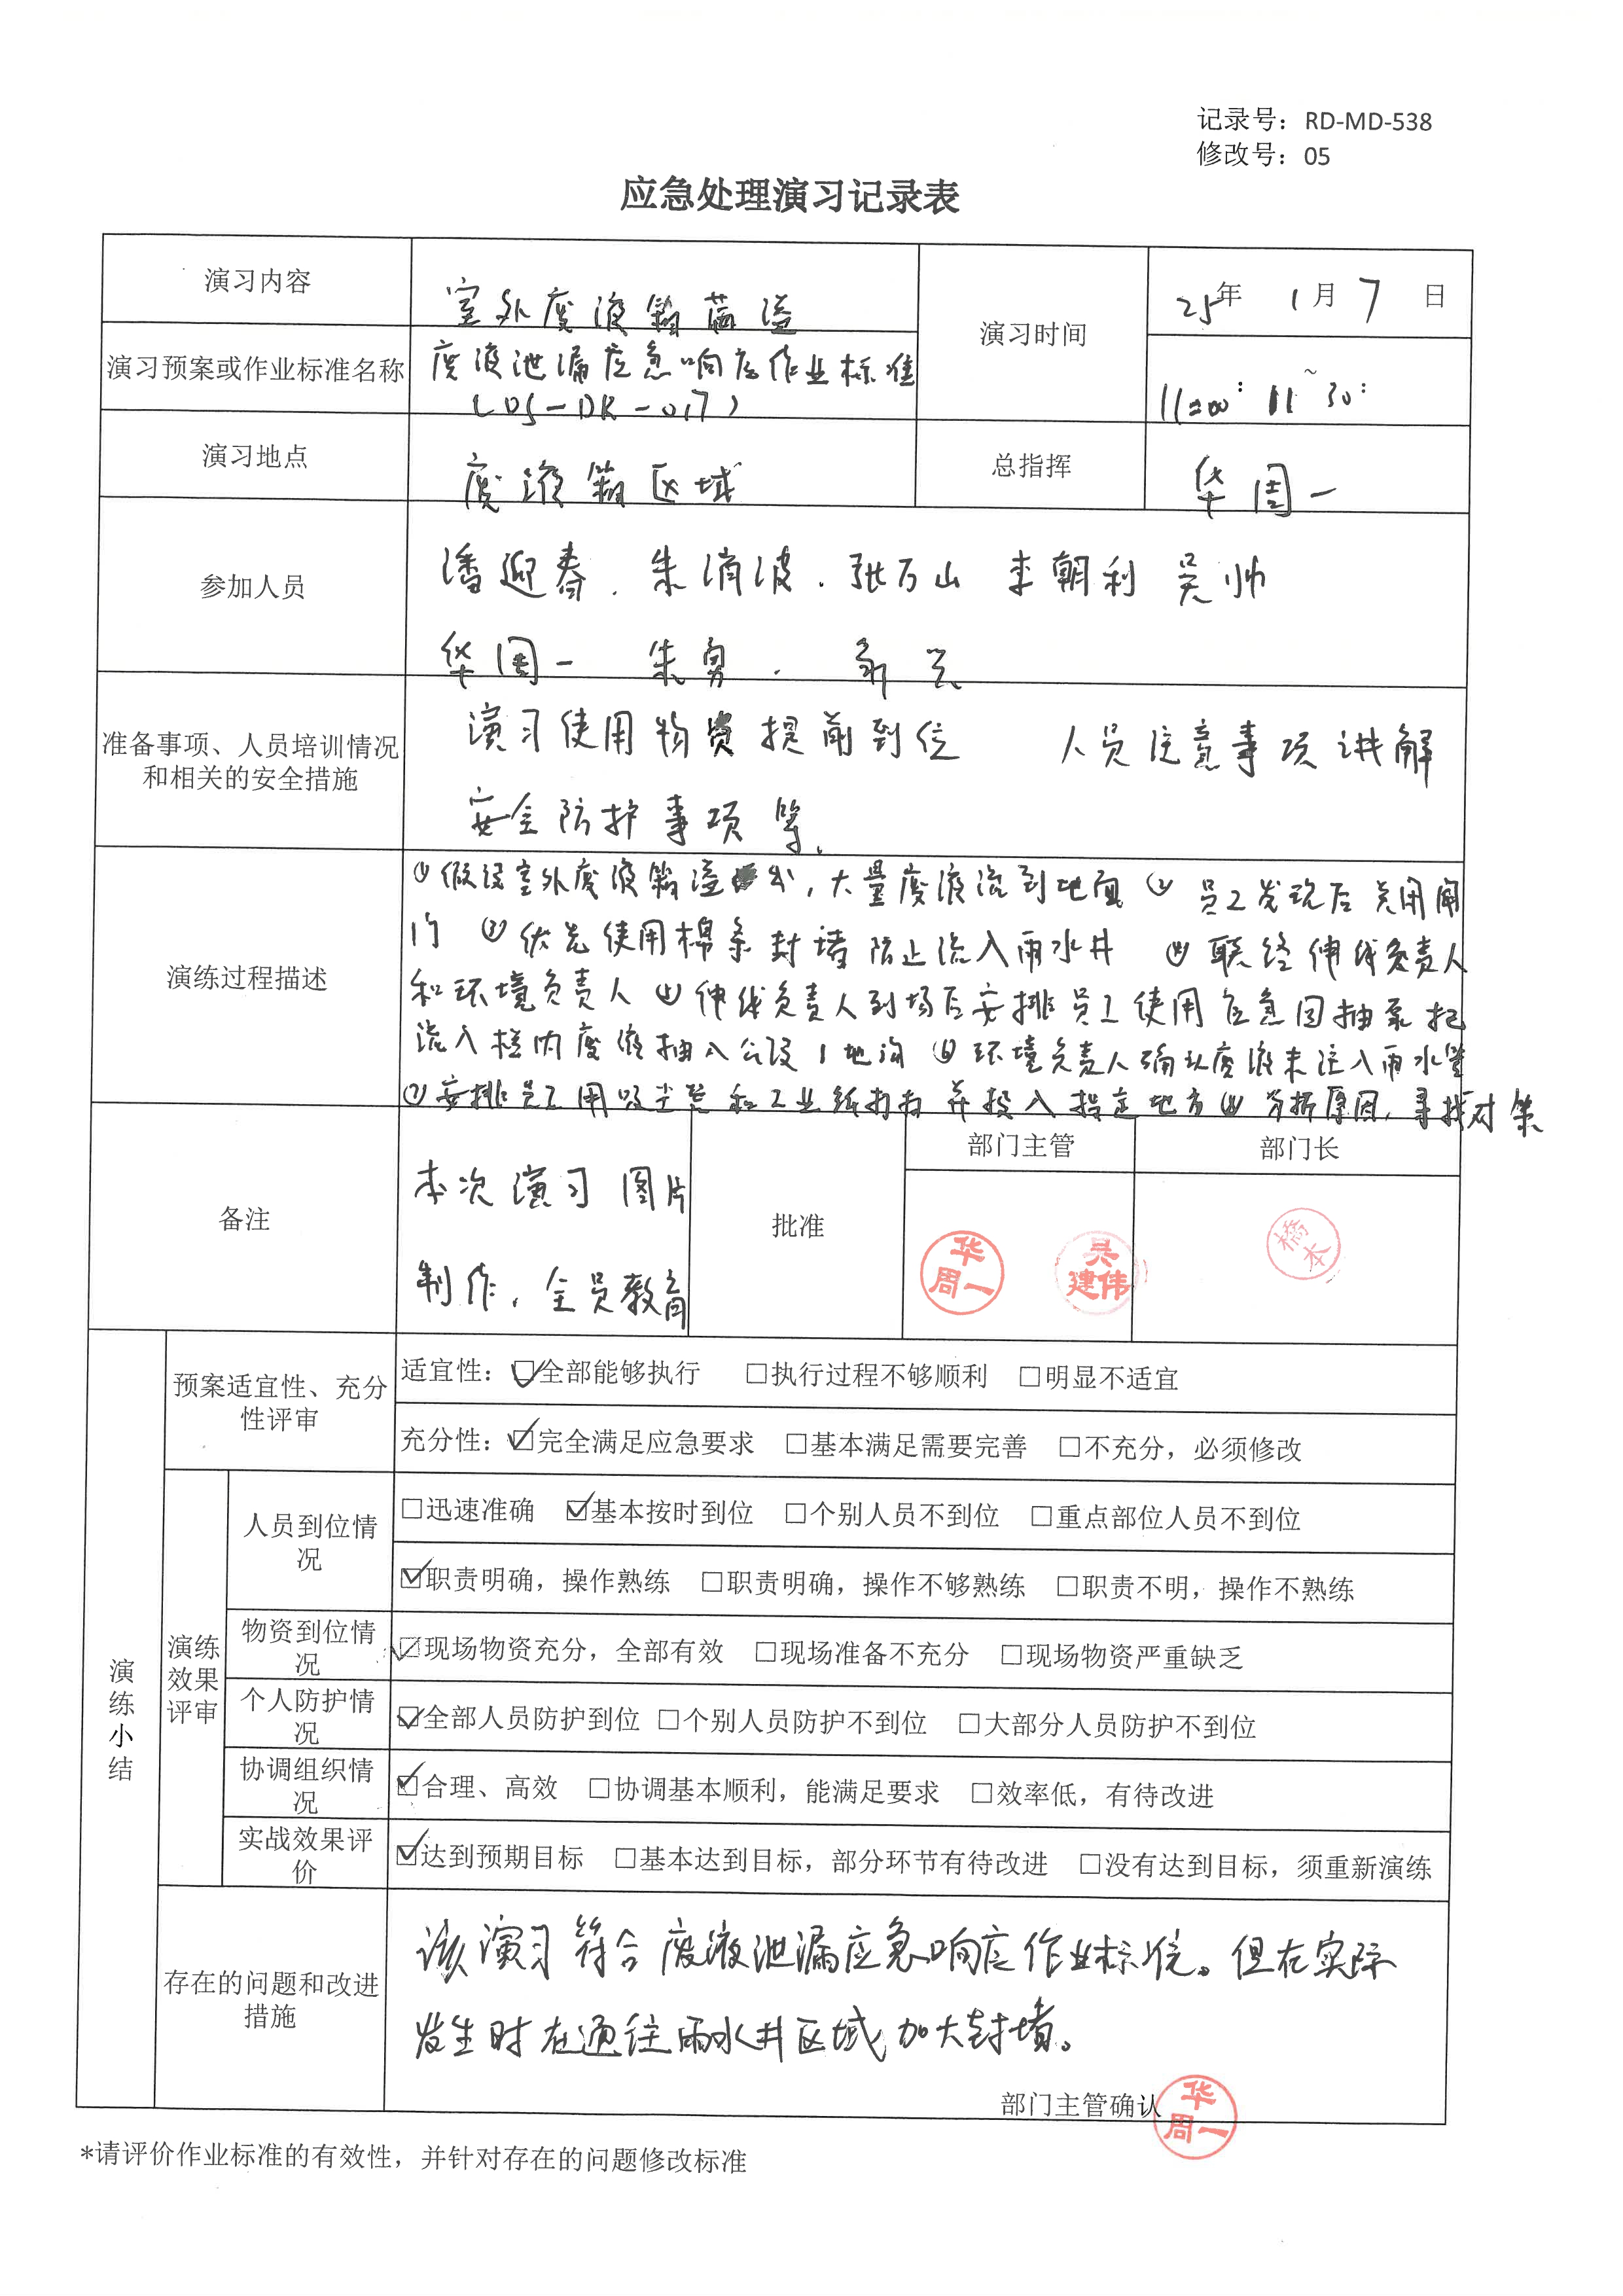 记录号：RD-MD-538
修改号：05
应急处理演习记录表
演习内容
室外废液箱满溢
演习时间
25年 1月7日
演习预案或作业标准名称
废液泄漏应急响应作业标准
(DS-DR-017)
11:00 ~ 11:30
演习地点
废液箱区域
总指挥
华周一
参加人员
潘迎春. 朱消波. 张万山 李朝利 吴帅
华周一 朱勇.
准备事项、人员培训情况
和相关的安全措施
演习使用物资提前到位 人员注意事项讲解
安全防护事项等.
演练过程描述
①假设室外废液箱溢出，大量废液流到地面 ② 员工发现后关闭阀
门 ③优先使用棉条封堵防止流入雨水井 ④联络伸线负责人
和环境负责人 ⑤伸线负责人到场后安排员工使用应急回抽泵把
流入槽内废液抽入公设1地沟 ⑥环境负责人确认废液未流入雨水管
⑦安排员工用吸尘器和工业纸打扫并投入指定地方 ⑧分析原因，寻找对策
备注
本次演习图片
制作，全员教育
批准
部门主管
部门长
华周一
吴建伟
橋本
演练小结
预案适宜性、充分
性评审
适宜性：☑全部能够执行 □执行过程不够顺利 □明显不适宜
充分性：☑完全满足应急要求 □基本满足需要完善 □不充分，必须修改
演练效果评审
人员到位情
况
□迅速准确 ☑基本按时到位 □个别人员不到位 □重点部位人员不到位
☑职责明确，操作熟练 □职责明确，操作不够熟练 □职责不明，操作不熟练
物资到位情
况
☑现场物资充分，全部有效 □现场准备不充分 □现场物资严重缺乏
个人防护情
况
☑全部人员防护到位 □个别人员防护不到位 □大部分人员防护不到位
协调组织情
况
☑合理、高效 □协调基本顺利，能满足要求 □效率低，有待改进
实战效果评
价
☑达到预期目标 □基本达到目标，部分环节有待改进 □没有达到目标，须重新演练
存在的问题和改进
措施
该演习符合废液泄漏应急响应作业标准。但在实际
发生时在通往雨水井区域加大封堵。
部门主管确认
华周一
*请评价作业标准的有效性，并针对存在的问题修改标准